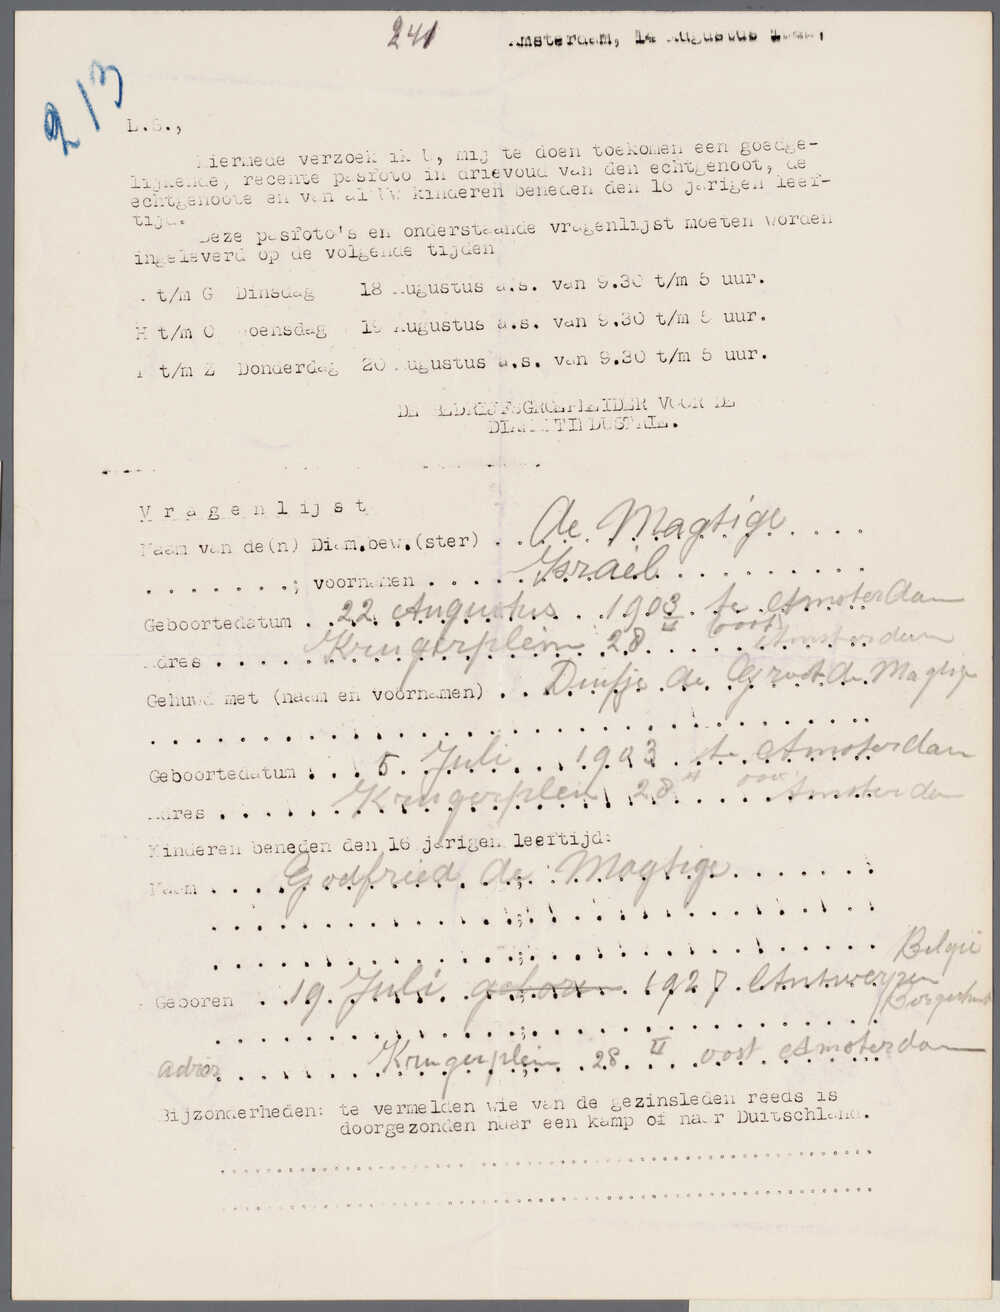 241
Amsterdam, 14 Augustus
213
L.S.,
Hiermede verzoek ik U, mij te doen toekomen een goedge-
lijkende, recente pasfoto in drievoud van den echtgenoot, de
echtgenoote en van al Uw kinderen beneden den 16 jarigen leef-
tijd.
Deze pasfoto's en onderstaande vragenlijst moeten worden
ingeleverd op de volgende tijden
t/m G Dinsdag 18 Augustus a.s. van 9.30 t/m 5 uur.
H t/m O Woensdag 19 Augustus a.s. van 9.30 t/m 5 uur.
P t/m Z Donderdag 20 Augustus a.s. van 9.30 t/m 5 uur.
DE BEDRIJFSGROEPLEIDER VOOR DE
DIAMANTINDUSTRIE.
Vragenlijst
Naam van de(n) Diam.bew.(ster) . de Magtige
; voornamen Israël
Geboortedatum . 22 Augustus 1903 te Amsterdam
Adres Krugerplein 28 II (oost) Amsterdam
Gehuwd met (naam en voornamen) . de Groot de Magtige
Geboortedatum 5 Juli 1903 te Amsterdam
Adres Krugerplein 28 II oost Amsterdam
Kinderen beneden den 16 jarigen leeftijd:
Naam Godfried de Magtige
;
;
België
Geboren 19 Juli geboren 1927 Antwerpen
Borgerhout
;
adres Krugerplein 28 II oost Amsterdam
Bijzonderheden: te vermelden wie van de gezinsleden reeds is
doorgezonden naar een kamp of naar Duitschland.